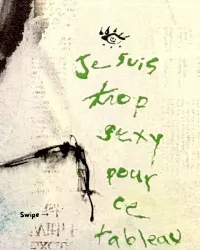 Je suis
trop
sexy
pour
ce
Swipe →
tableau